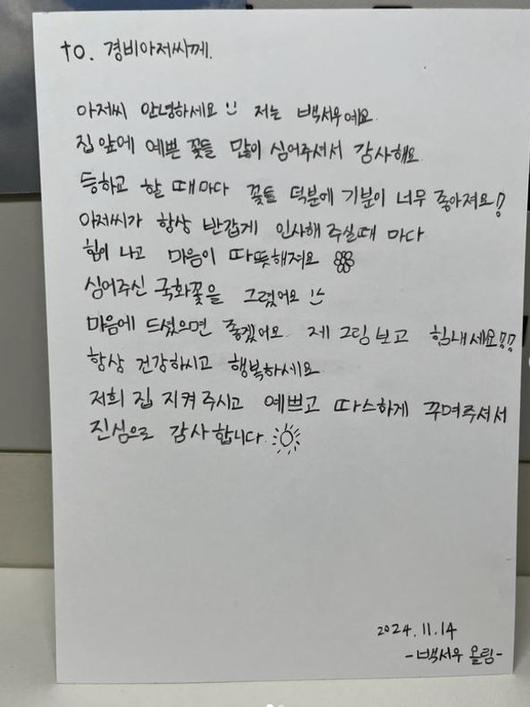 to. 경비아저씨께.
아저씨 안녕하세요 저는 백서우예요.
집 앞에 예쁜 꽃들 많이 심어주셔서 감사해요
등하교 할 때마다 꽃들 덕분에 기분이 너무 좋아져요!
아저씨가 항상 반갑게 인사해 주실때 마다
힘이 나고 마음이 따뜻해져요
심어주신 국화꽃을 그렸어요
마음에 드셨으면 좋겠어요 제 그림 보고 힘내세요!!
항상 건강하시고 행복하세요
저희 집 지켜주시고 예쁘고 따스하게 꾸며주셔서
진심으로 감사합니다
2024.11.14
-백서우 올림-